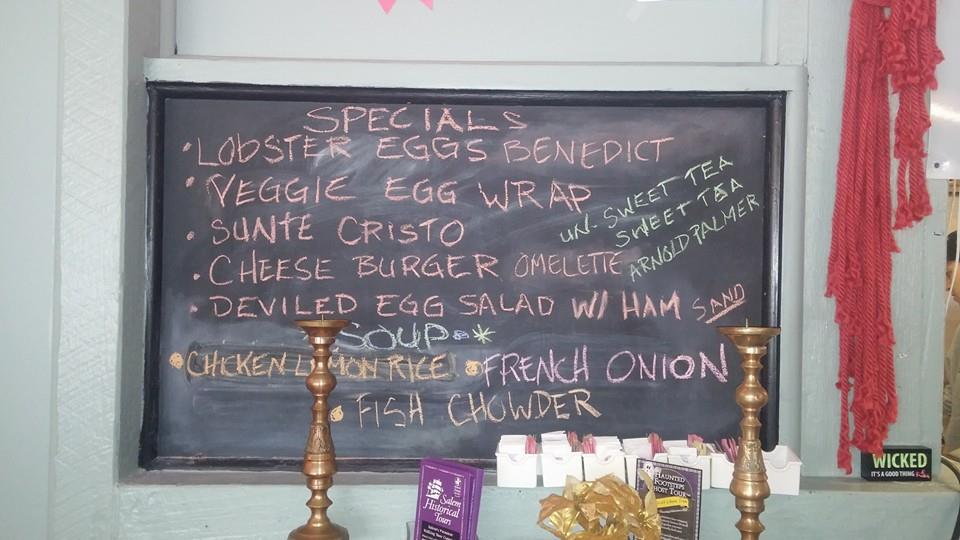 SPECIALS
• LOBSTER EGGS BENEDICT
• VEGGIE EGG WRAP
• SUNTE CRISTO
• CHEESE BURGER OMELETTE
• DEVILED EGG SALAD W/ HAM SAND
UN-SWEET TEA
SWEET TEA
ARNOLD PALMER
SOUP
• CHICKEN LEMON RICE • FRENCH ONION
• FISH CHOWDER
Salem
Historical
Tours
HAUNTED
FOOTSTEPS
GHOST TOUR
WICKED
IT'S A GOOD THING